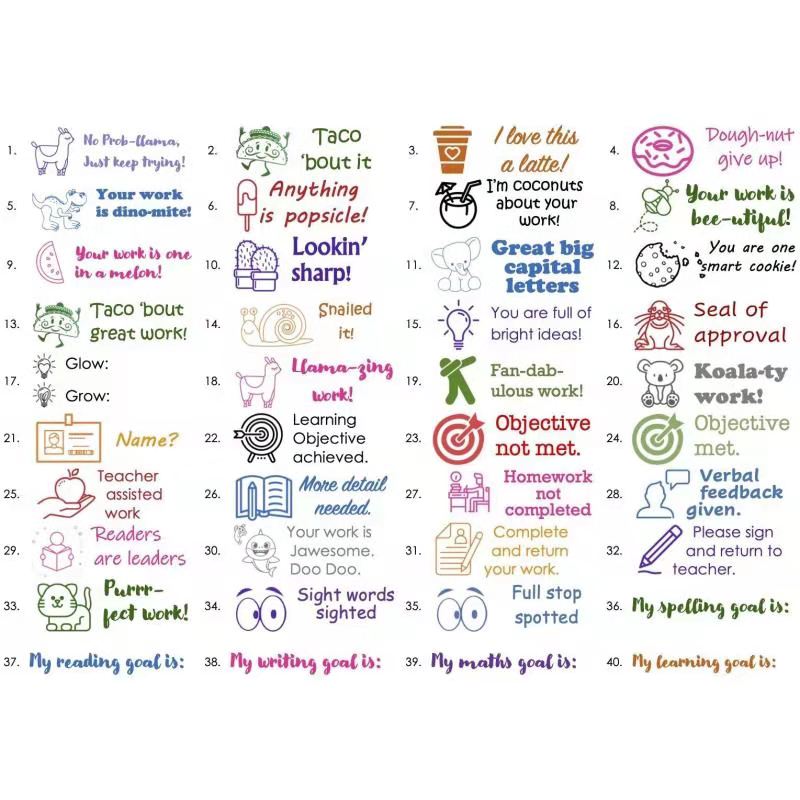 1. No Prob-llama,
Just keep trying!
2. Taco
'bout it
3. I love this
a latte!
4. Dough-nut
give up!
5. Your work
is dino-mite!
6. Anything
is popsicle!
7. I'm coconuts
about your
work!
8. Your work is
bee-utiful!
9. Your work is one
in a melon!
10. Lookin'
sharp!
11. Great big
capital
letters
12. You are one
smart cookie!
13. Taco 'bout
great work!
14. Snailed
it!
15. You are full of
bright ideas!
16. Seal of
approval
17. Glow:
Grow:
18. Llama-zing
work!
19. Fan-dab-
ulous work!
20. Koala-ty
work!
21. Name?
22. Learning
Objective
achieved.
23. Objective
not met.
24. Objective
met.
25. Teacher
assisted
work
26. More detail
needed.
27. Homework
not
completed
28. Verbal
feedback
given.
29. Readers
are leaders
30. Your work is
Jawesome.
Doo Doo.
31. Complete
and return
your work.
32. Please sign
and return to
teacher.
33. Purrr-
fect work!
34. Sight words
sighted
35. Full stop
spotted
36. My spelling goal is:
37. My reading goal is:
38. My writing goal is:
39. My maths goal is:
40. My learning goal is: